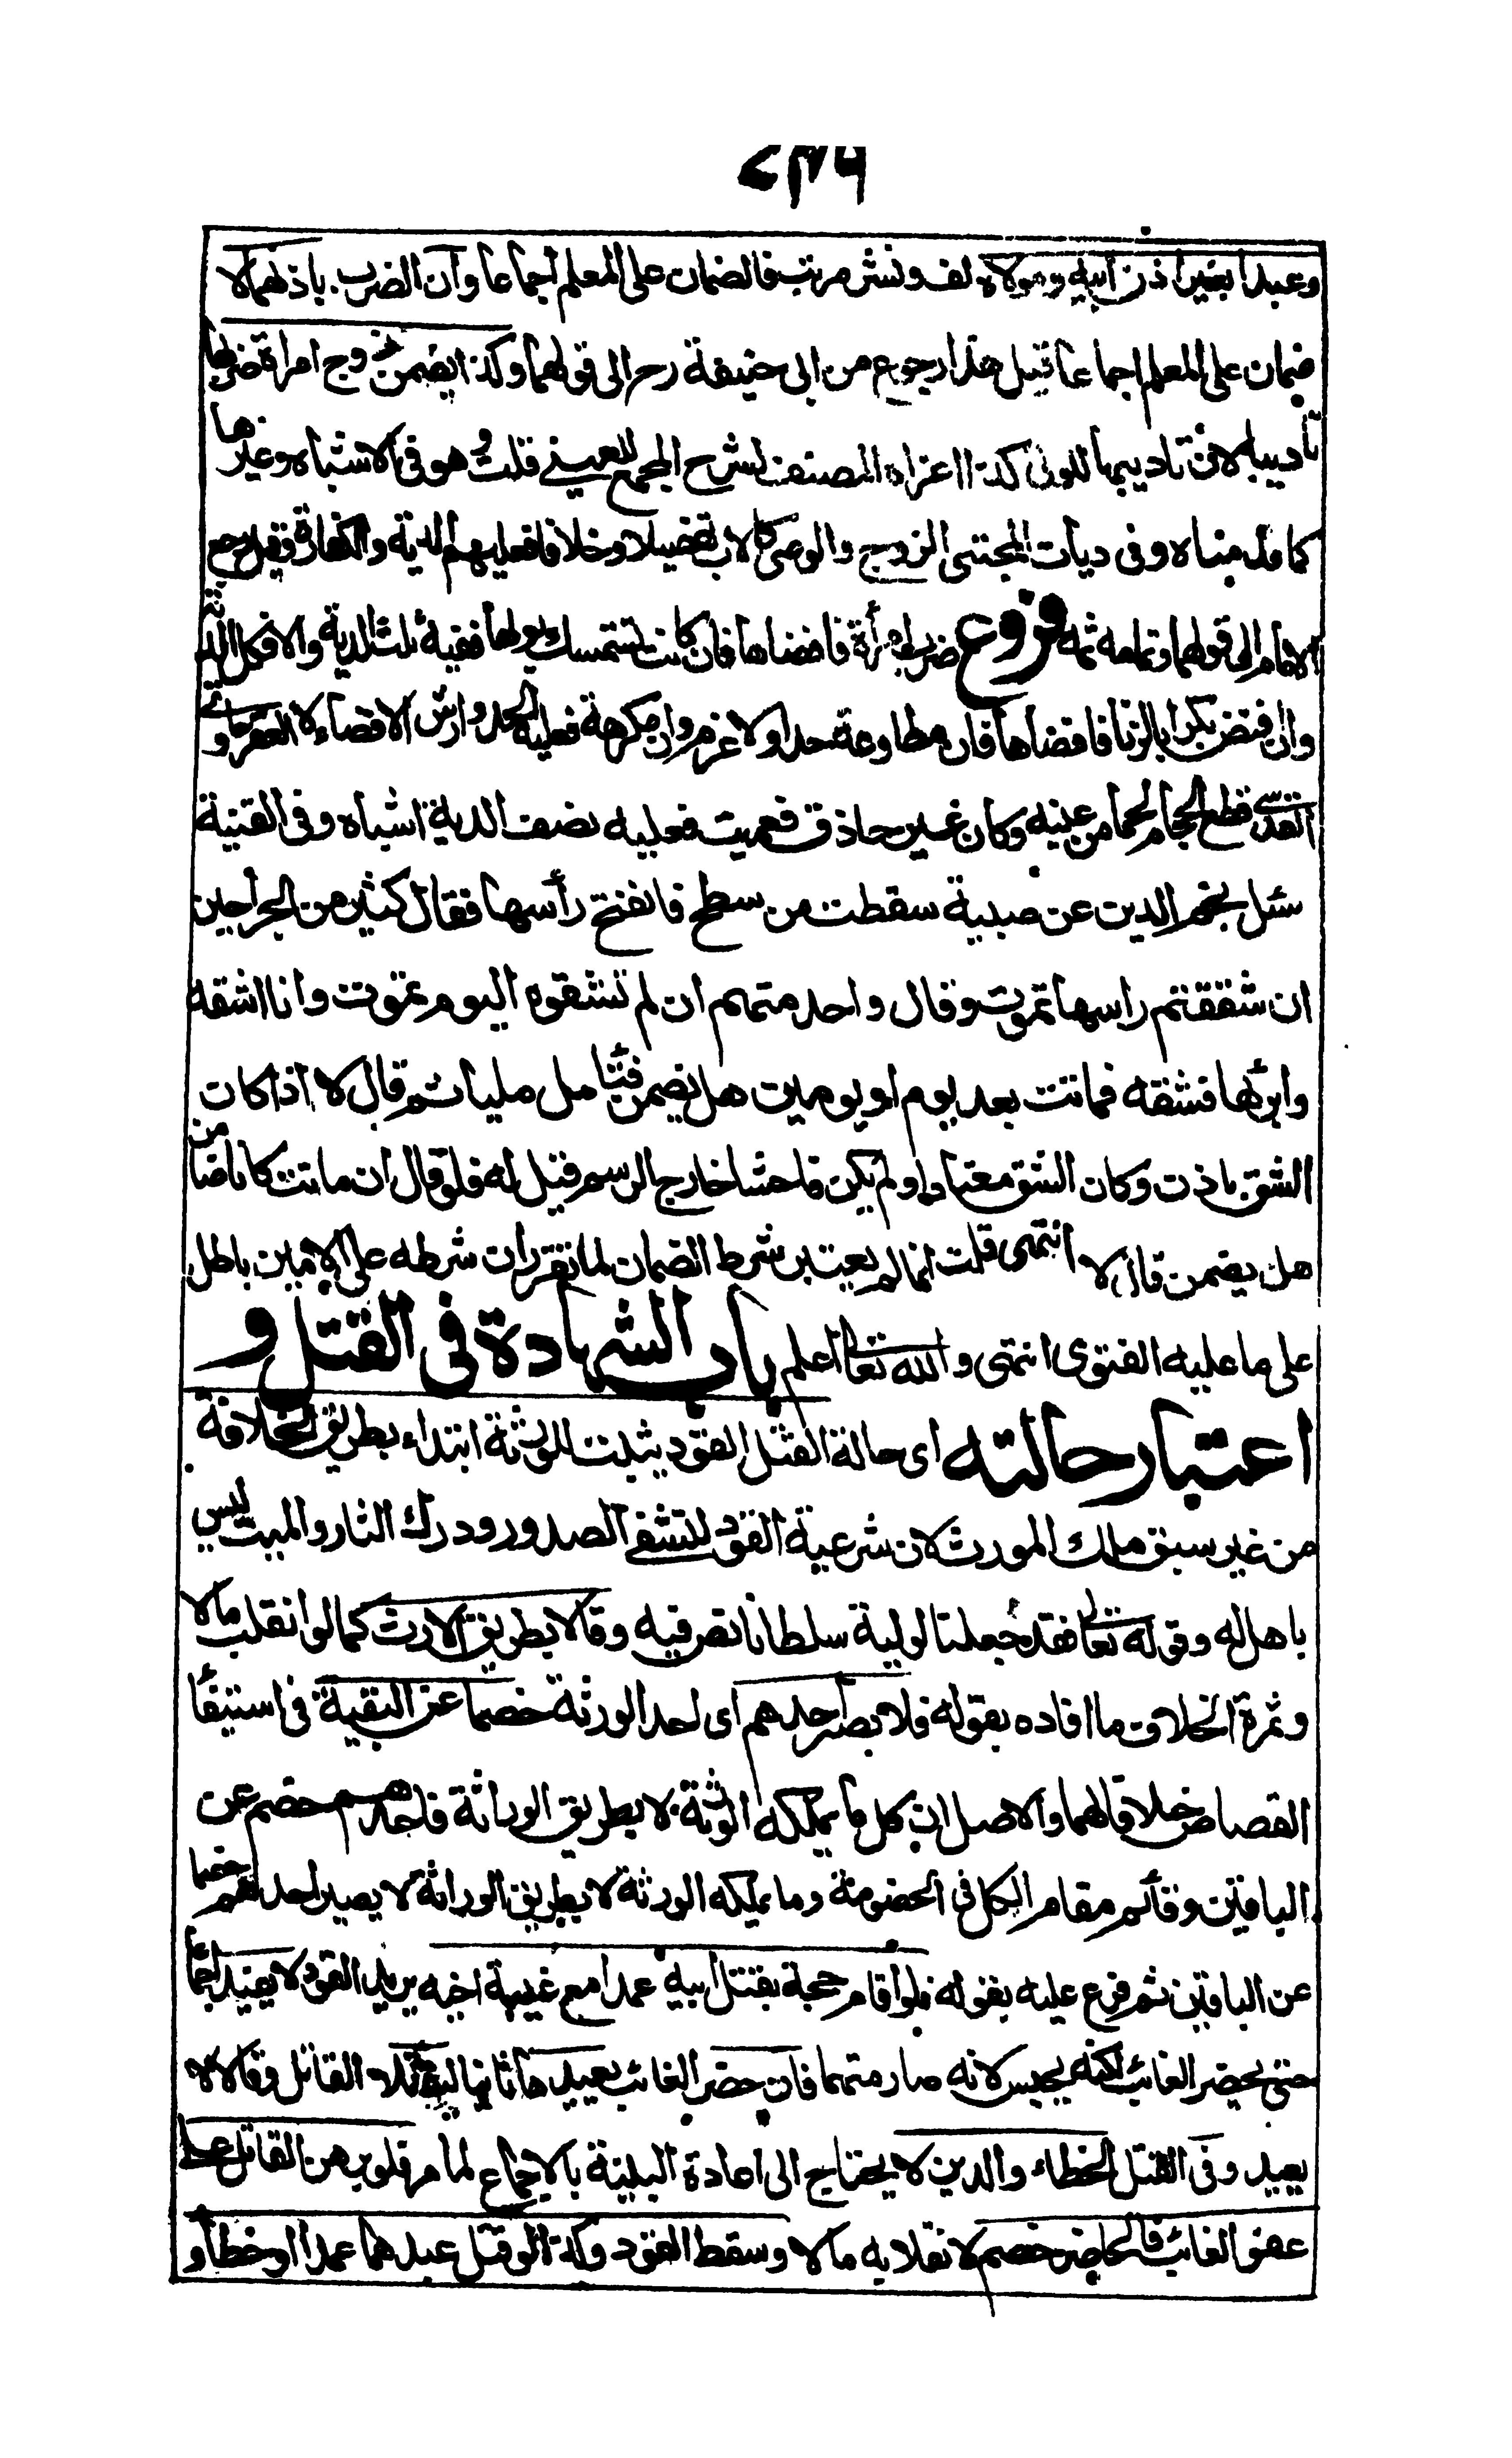 ٢٣٦
وعبدا بغير اذن ابيه ومولاه لف ونشر مرتب فالضمان على المعلم اجماعا وان الضرب باذنهما لا
ضمان على المعلم اجماعا قيل هذا رجوع من ابى حنيفة رح الى قولهما وكذا يضمن زوج امراة ضربها
تأديبا لان تاديبها للولى كذا عزاه المصنف لشرح المجمع للعينى قلت وهو فى الاشباه وغيرها
كما قدمناه وفى ديات المجتبى الزوج والوصى كالاب تفصيلا وخلافا فعليهم الدية والكفارة وقيل رجع
الامام الى قولهما وتمامه ثمه فروع ضرب امرأة فافضاها فان كانت تستمسك بولها ففيه ثلث الدية والا فكل الدية
وان افتض بكرا بالزنا فافضاها فان مطاوعة حدا ولا غرم وان مكرهة فعليه الحد وارش الافضاء لا العقر حاوى
القدسى قطع الحجام لحما من عينه وكان غير حاذق فعميت فعليه نصف الدية اشباه وفى القنية
سئل نجم الدين عن صبية سقطت من سطح فانفتح رأسها فقال كثير من الجراحين
ان شققتم راسها تموت وقال واحد منهم ان لم تشقوه اليوم تموت وانا اشقه
وابرئها فشقه فماتت بعد يوم او يومين هل يضمن فتأمل مليا ثم قال لا اذا كان
الشق باذن وكان الشق معتادا ولم يكن فاحشا خارج الرسم قيل له فلو قال ان ماتت كانا ضامن
هل يضمن قال لا انتهى قلت انما لم يعتبر شرط الضمان لما تقرر ان شرطه على الامين باطل
على ما عليه الفتوى انتهى والله تعالى اعلم باب الشهادة فى القتل و
اعتبار حالته اى حالة القتل القود يثبت للورثة ابتداء بطريق الخلافة
من غير سبق ملك المورث لان شرعية القود للتشفى الصدور ودرك الثار والميت ليس
باهل له وقوله تعالى فقد جعلنا لوليه سلطانا نصر فيه وقالا بطريق الارث كما لو انقلب مالا
وثمرة الخلاف ما افاده بقوله فلا يصر احدهم اى احد الورثة خصما عن البقية فى استيفأ
القصاص خلافا لهما والاصل ان كل ما يملكه الورثة لا بطريق الوراثة فاحدهم خصم عن
الباقين وقائم مقام الكل فى الخصومة وما يملكه الورثة لا بطريق الوراثة لا يصير احدهم خصما
عن الباقين ثم فرع عليه بقوله فلو اقام حجة بقتل ابيه عمدا مع غيبة اخيه يريد القود لا يقيد اجماعا
حتى يحضر الغائب لكنه يحبس لانه صار متهما فان حضر الغائب يعيدها ثانيا ليقتلا القاتل وقالا لا
يعيد وفى القتل الخطاء والدين لا يحتاج الى اعادة البينة بالاجماع لما مر فلو برهن القاتل على
عفو الغائب فالحاضر خصم لانقلابه مالا وسقط القود وكذا لو قتل عبدهما عمدا او خطأ و